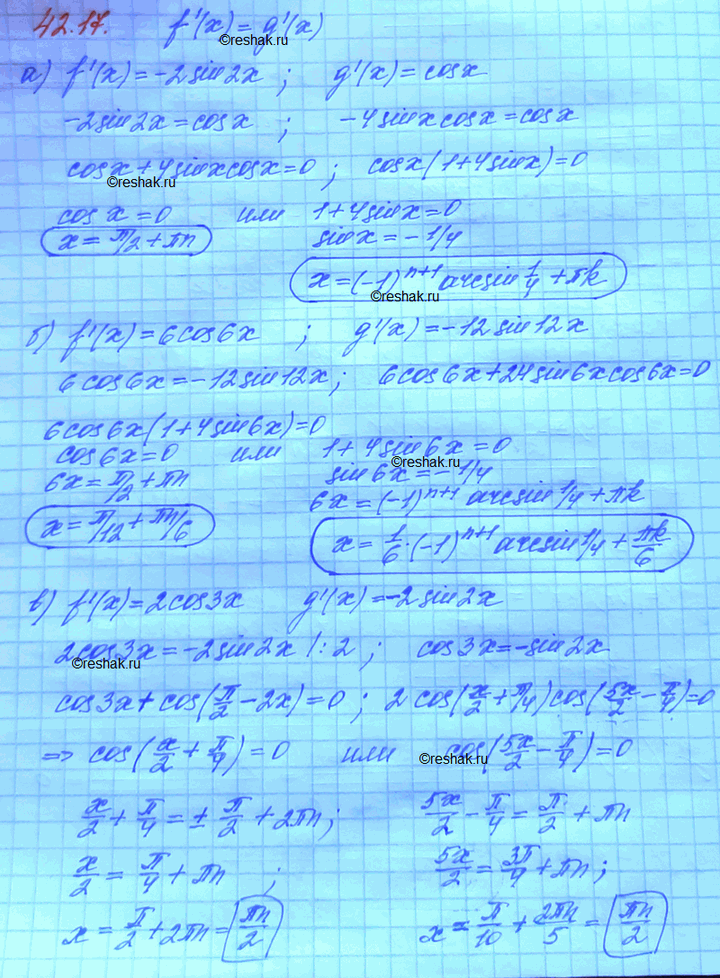 42.17. f'(x) = g'(x)
©reshak.ru
а) f'(x) = -2sin2x ; g'(x) = cosx
-2sin2x = cosx ; -4sinxcosx = cosx
cosx + 4sinxcosx = 0 ; cosx(1+4sinx) = 0
©reshak.ru
cosx = 0 или 1+4sinx = 0
x = π/2 + πn sinx = -1/4
x = (-1)^{n+1} arcsin 1/4 + πk
©reshak.ru
б) f'(x) = 6cos6x ; g'(x) = -12sin12x
6cos6x = -12sin12x ; 6cos6x + 24sin6xcos6x = 0
6cos6x(1+4sin6x) = 0
cos6x = 0 или 1+4sin6x = 0
©reshak.ru
6x = π/2 + πn sin6x = -1/4
6x = (-1)^{n+1} arcsin 1/4 + πk
x = π/12 + πn/6 x = 1/6 · (-1)^{n+1} arcsin 1/4 + πk/6
в) f'(x) = 2cos3x g'(x) = -2sin2x
2cos3x = -2sin2x |:2 ; cos3x = -sin2x
©reshak.ru
cos3x + cos(π/2 - 2x) = 0 ; 2cos(x/2 + π/4)cos(5x/2 - π/4) = 0
=> cos(x/2 + π/4) = 0 или cos(5x/2 - π/4) = 0
©reshak.ru
x/2 + π/4 = ± π/2 + 2πn ; 5x/2 - π/4 = π/2 + πn
x/2 = π/4 + πn ; 5x/2 = 3π/4 + πn ;
x = π/2 + 2πn = πn/2 x = π/10 + 2πn/5 = πn/2